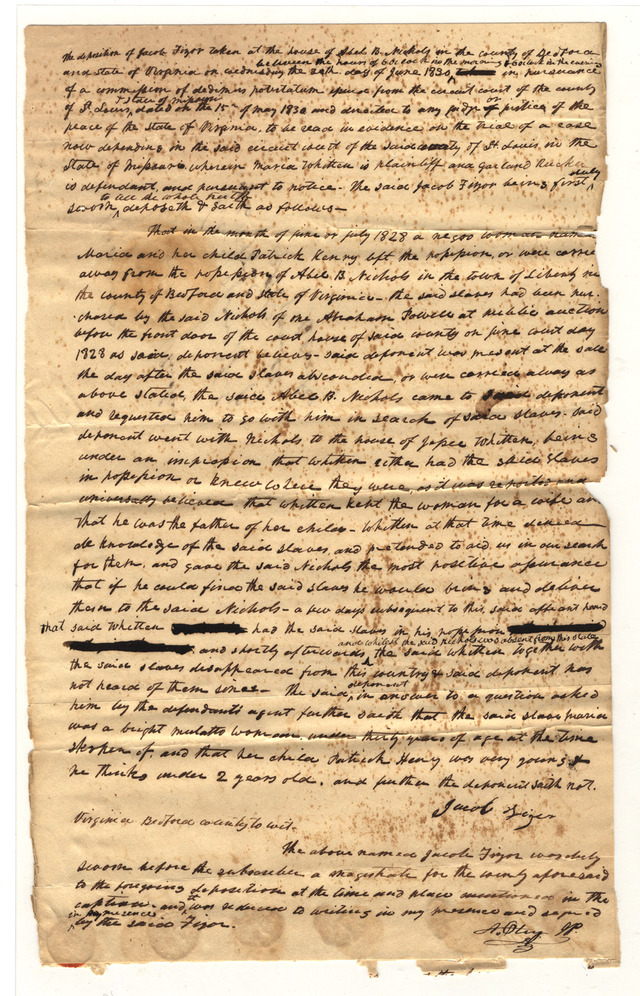 The deposition of Jacob Fizor taken at the house of Abel B. Nichols in the county of Bedford
between the hours of 6 oclock in the morning & 6 oclock in the evening
and State of Virginia on wednesday the 30th day of June 1830, in pursuance
of a commission of dedimus potestatum issued from the circuit court of the county
& State of Missouri
of St. Louis, dated on the 15th of May 1830 and directed to any judge or justice of the
peace of the State of Virginia, to be read in evidence on the trial of a case
now depending in the said circuit court of the said county of St. Louis in the
State of Missouri wherein Maria Whitten is plaintiff and Garland Rucker
duly
is defendant, and pursuant to notice - The said Jacob Fizor being first
to tell the whole truth
sworn, deposeth & saith as follows -
That in the month of June or July 1828 a negro woman nam
Maria and her child Patrick Henry left the possession, or were carrie
away from the possession of Abel B. Nichols in the town of Liberty in
the county of Bedford and State of Virginia - the said slaves had been pur-
chased by the said Nichols of one Abraham Fowell at public auction
before the front door of the court house of said county on June court day
1828 as said deponent believes - said deponent was present at the sale
the day after the said slaves absconded, or were carried away as
above stated, the said Abel B. Nichols came to deponent
and requested him to go with him in search of said slaves - said
deponent went with Nichols to the house of Jesse Whitten, being
under an impression that Whitten either had the said slaves
in possession or knew where they were, as it was reported and
universally believed that Whitten kept the woman for a wife an
that he was the father of her child - Whitten at that time denied
all knowledge of the said slaves, and pretended to aid us in our search
for them, and gave the said Nichols the most positive assurance
that if he could find the said slaves he would bring and deliver
them to the said Nichols - a few days subsequent to this, said affiant heard
that said Whitten had the said slaves in his possession
and whilst the said Nichols was absent from this State
and shortly afterwards, the said Whitten together with
the said slaves disappeared from this country & said deponent has
deponent
not heard of them since - The said, in answer to a question asked
him by the defendants agent further saith that the said slave Maria
was a bright mulatto woman under thirty years of age at the time
spoken of, and that her child Patrick Henry was very young &
he thinks under 2 years old. and further the deponent saith not.
Jacob Fizor
Virginia Bedford county to wit.
The above named Jacob Fizor was duly
sworn before the subscriber a magistrate for the county aforesaid
to the foregoing deposition at the time and place mentioned in the
caption, and it was reduced to writing in my presence and signed
in my presence
by the said Fizor.
JP.